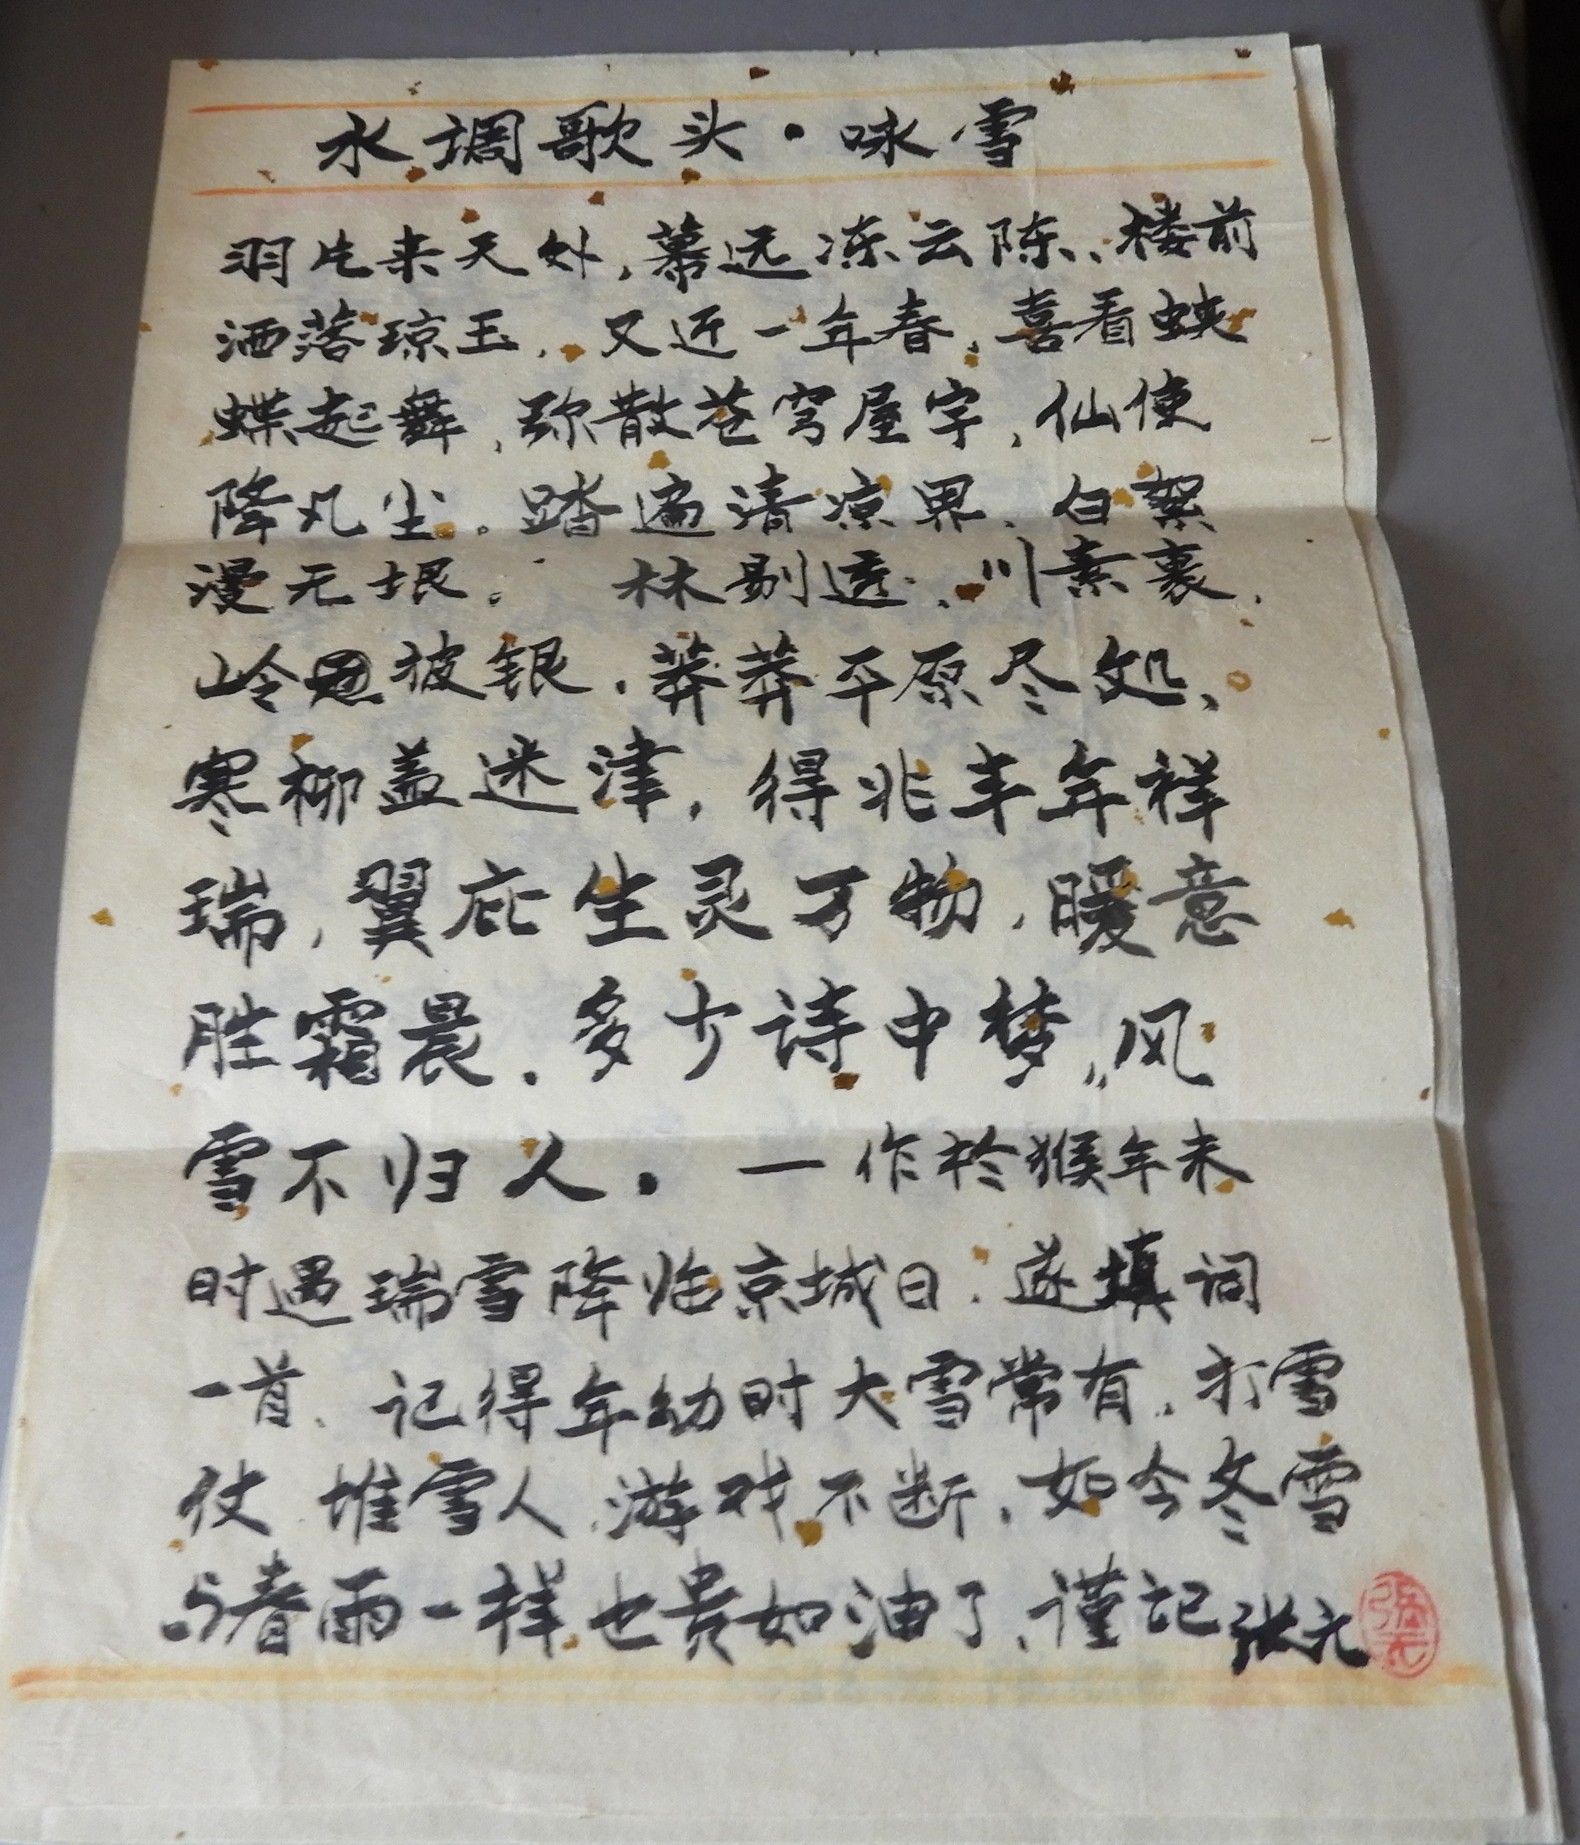 水调歌头·咏雪
羽片来天外，幕远冻云陈、楼前
洒落琼玉，又近一年春，喜看蛱
蝶起舞，弥散苍穹屋宇，仙使
降凡尘。踏遍清凉界、白絮
漫无垠。 林剔透、川素裹、
岭披银，莽莽平原尽处、
寒柳盖迷津，得兆丰年祥
瑞，翼庇生灵万物，暖意
胜霜晨。多少诗中梦，风
雪不归人。一作於猴年末
时遇瑞雪降临京城日，遂填词
一首、记得年幼时大雪常有，打雪
仗 堆雪人、游戏不断，如今冬雪
与春雨一样也贵如油了、谨记 张元
張元